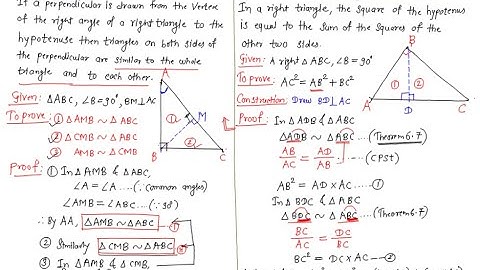 If a perpendicular is drawn from the vertex
of the right angle of a right triangle to the
hypotenuse then triangles on both sides of
the perpendicular are similar to the whole
triangle and to each other.
Given: △ABC, ∠B = 90°, BM⊥AC
To prove: ① △AMB ~ △ABC
② △CMB ~ △ABC
③ AMB ~ △CMB
Proof: ① In △AMB & △ABC,
∠A = ∠A ....(∵ Common angles)
∠AMB = ∠ABC (∵ 90°)
∴ By AA, △AMB ~ △ABC —①
② Similarly △CMB ~ △ABC ②
③ In △AMB & △CMB,
A
M
B
C
①
②
In a right triangle, the square of the hypotenus
is equal to the sum of the squares of the
other two sides.
Given: A right △ABC, ∠B = 90°
To prove: AC² = AB² + BC²
Construction: Draw BD⊥AC
B
① ②
A
D
C
Proof: In △ADB & △ABC
△ADB ~ △ABC ...(Theorem 6.7)
AB/AC = AD/AB ....(CPST)
AB² = AD × AC —①
In △BDC & △ABC
△BDC ~ △ABC ...(Theorem 6.7)
BC/AC = DC/BC
BC² = DC × AC —②